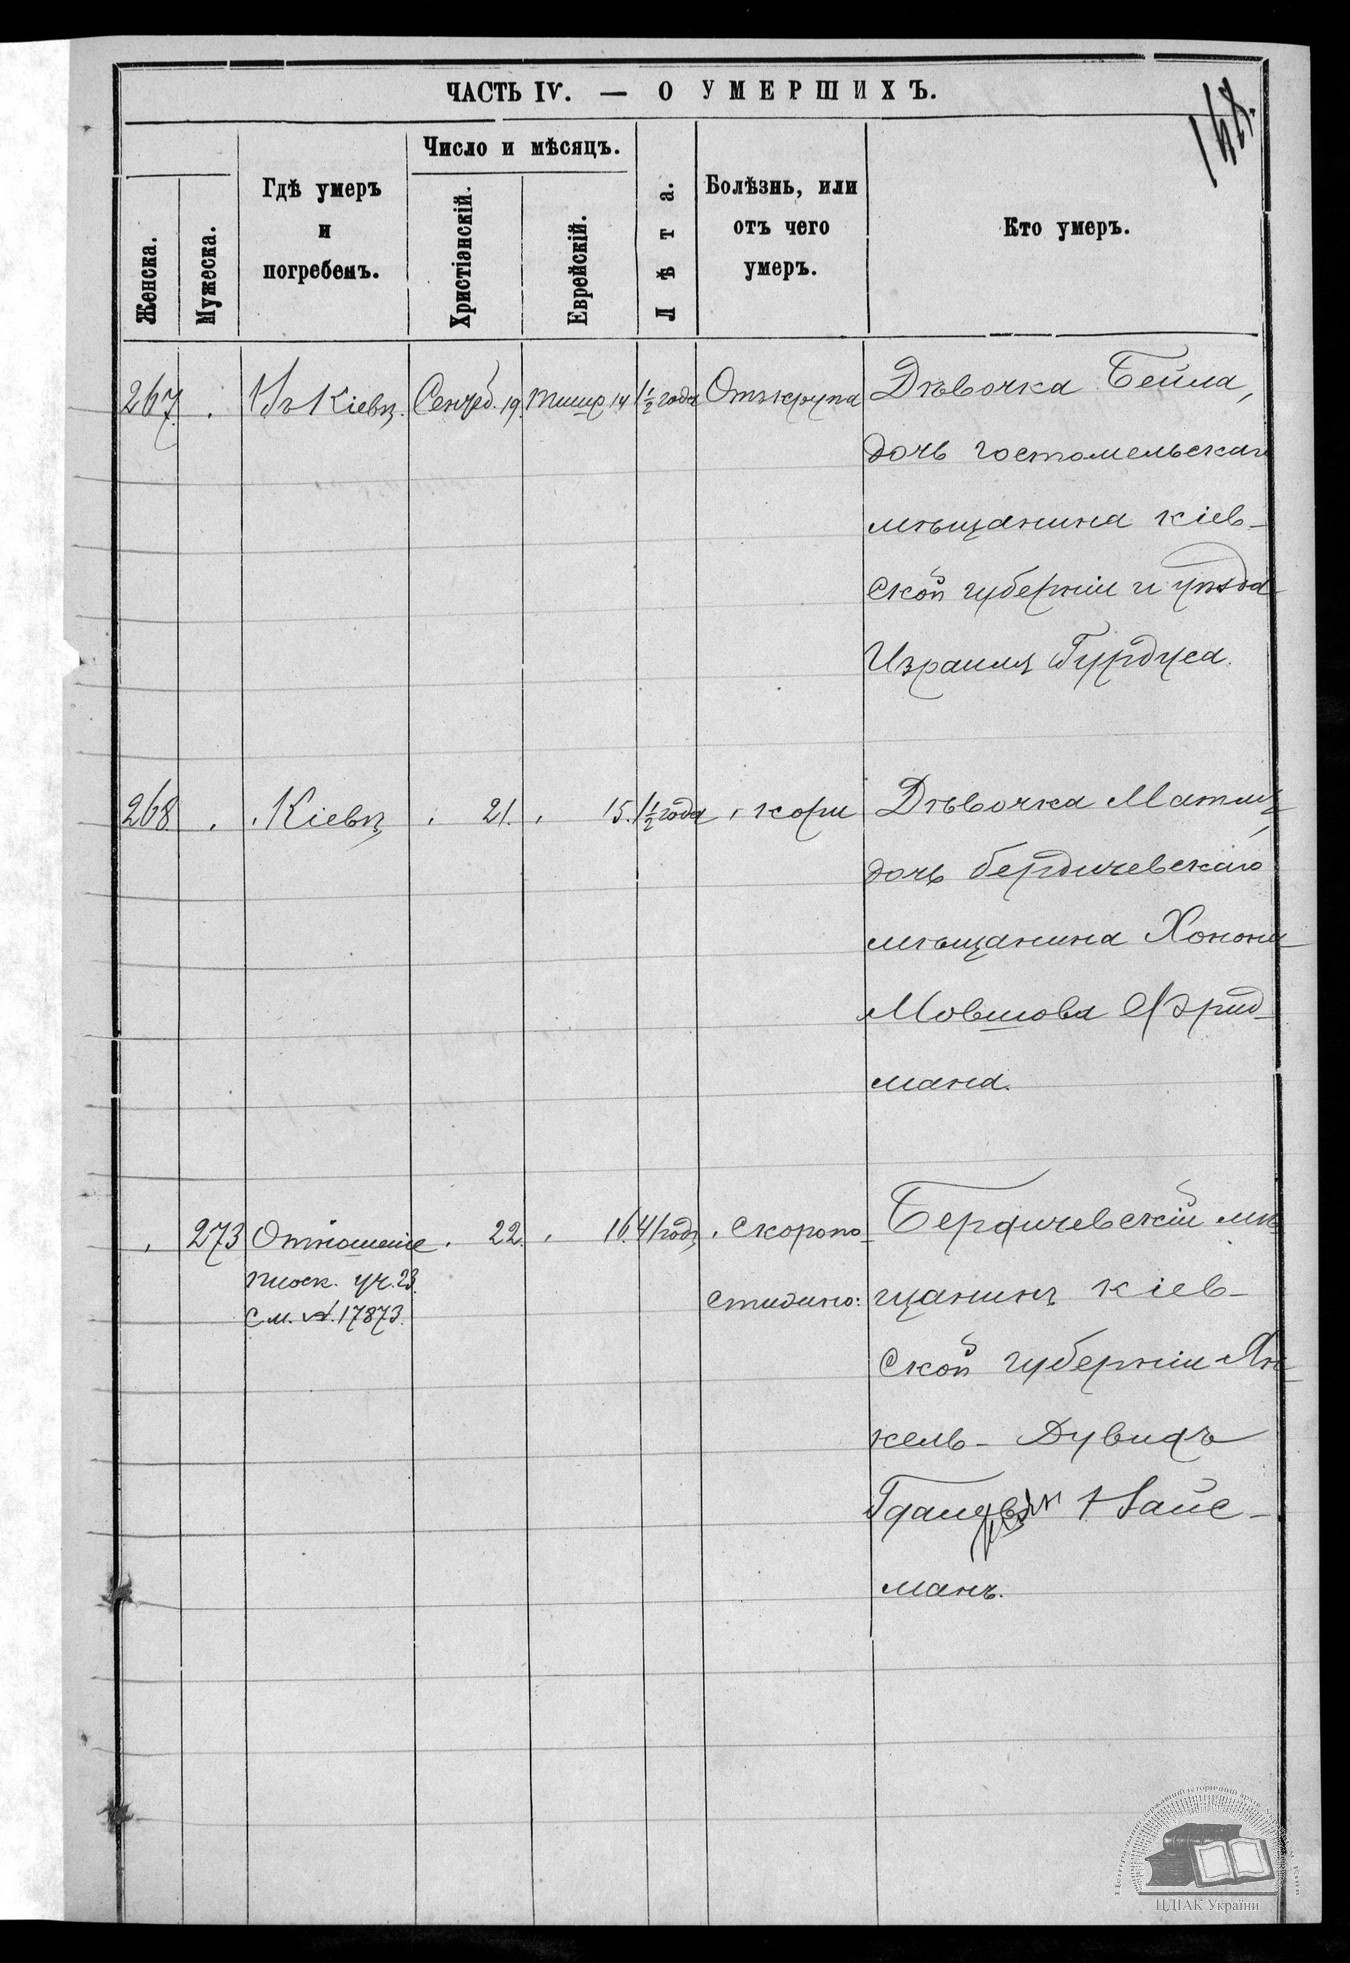 ЧАСТЬ IV. — О УМЕРШИХЪ.
Женска.
Мужеска.
Гдѣ умеръ
и
погребенъ.
Число и мѣсяцъ.
Христіянскій.
Еврейскій.
Лѣта.
Болѣзнь, или
отъ чего
умеръ.
Кто умеръ.
267. Въ Кіевѣ. Сентяб. 19. Тишр 14 1½ года Отъ крупа Дѣвочка Бейла,
дочь гостомельскаго
мѣщанина кіев-
ской губерніи и уѣзда
Израиля Гурдуса.
268 Кіевѣ 21. 15. 1½ года кори Дѣвочка
дочь бердичевскаго
мѣщанина Хонона
Мовшова Фрид-
мана.
273 Отношеніе 22. 16. 41 годъ Скоропо- Бердичевскій мѣ-
плоск. уч. 23
стижно: щанинъ кіев-
См. №. 17873.
ской губерніи Ян-
кель-Дувидъ
Вайс-
манъ.
ЦДІАК України